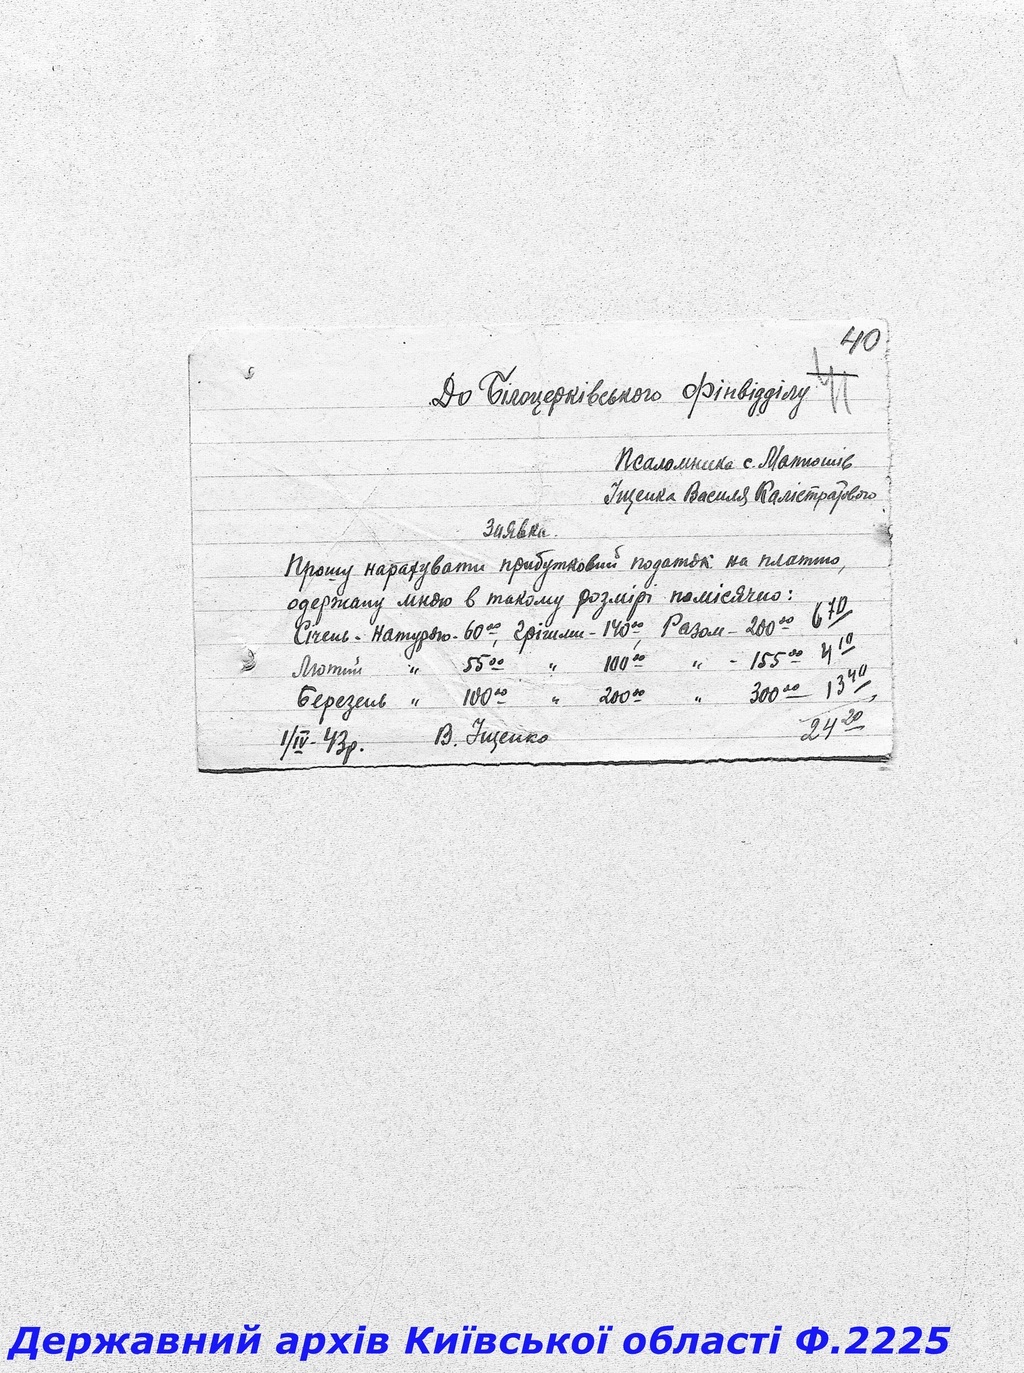 40
41
До Білоцерківського Фінвідділу
Псаломника с. Матюшів
Іщенка Василя Калістратового
Заявка.
Прошу нарахувати прибутковий податок на платню,
одержану мною в такому розмірі помісячно:
Січень - Натурою - 60⁰⁰, Грішми - 140⁰⁰, Разом - 200⁰⁰ 6⁷⁰
Лютий " 55⁰⁰ " 100⁰⁰ " - 155⁰⁰ 4¹⁰
Березень " 100⁰⁰ " 200⁰⁰ " 300⁰⁰ 13⁴⁰
1/IV - 43р. В. Іщенко 24²⁰
Державний архів Київської області Ф.2225